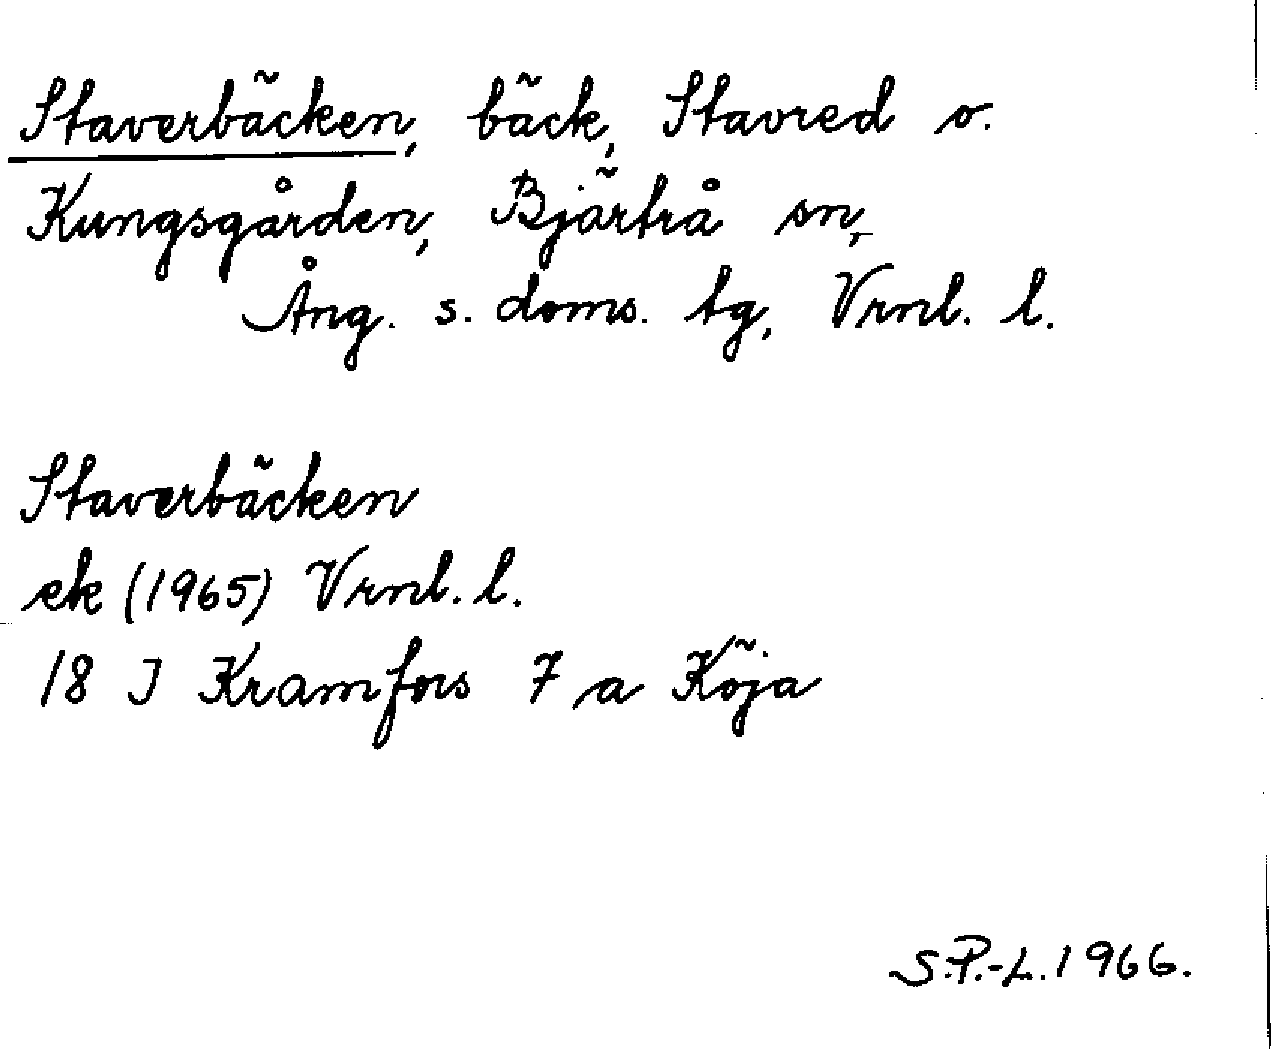 Staverbäcken, bäck, Stavred o.
Kungsgården, Bjärtrå sn,
Ång. s. doms. tg, Vrnl. l.
Staverbäcken
ek (1965) Vrnl. l.
18 J Kramfors 7 a Köja
S.P.-L. 1966.